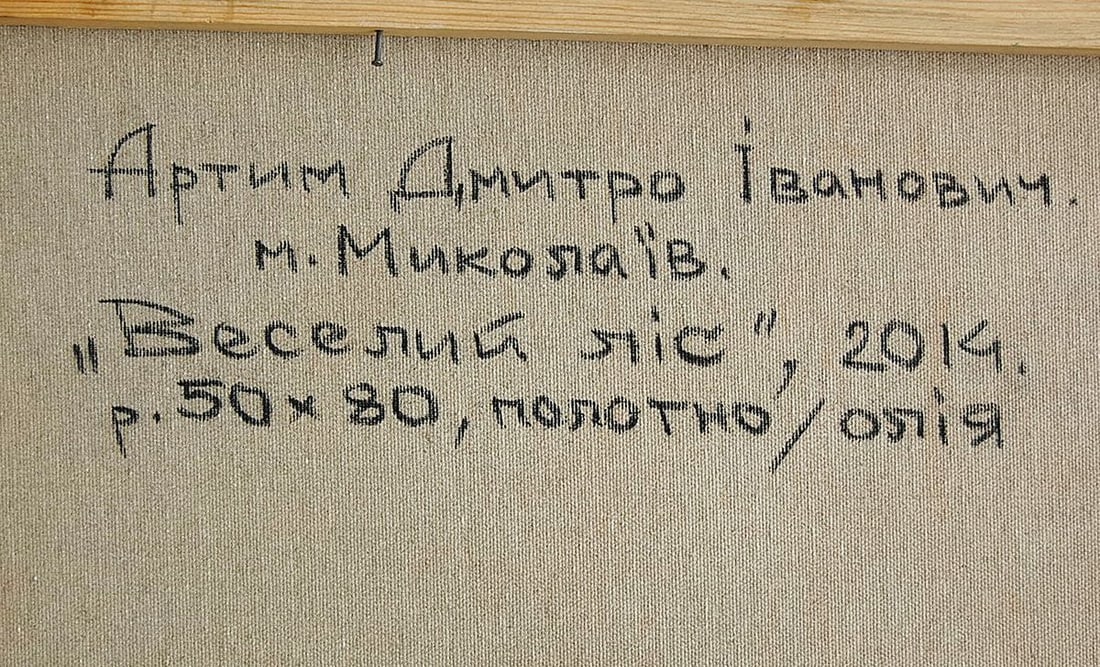 Артим Дмитро Іванович.
м. Миколаїв.
„Веселий ліс", 2014.
р. 50 × 80, полотно/олія